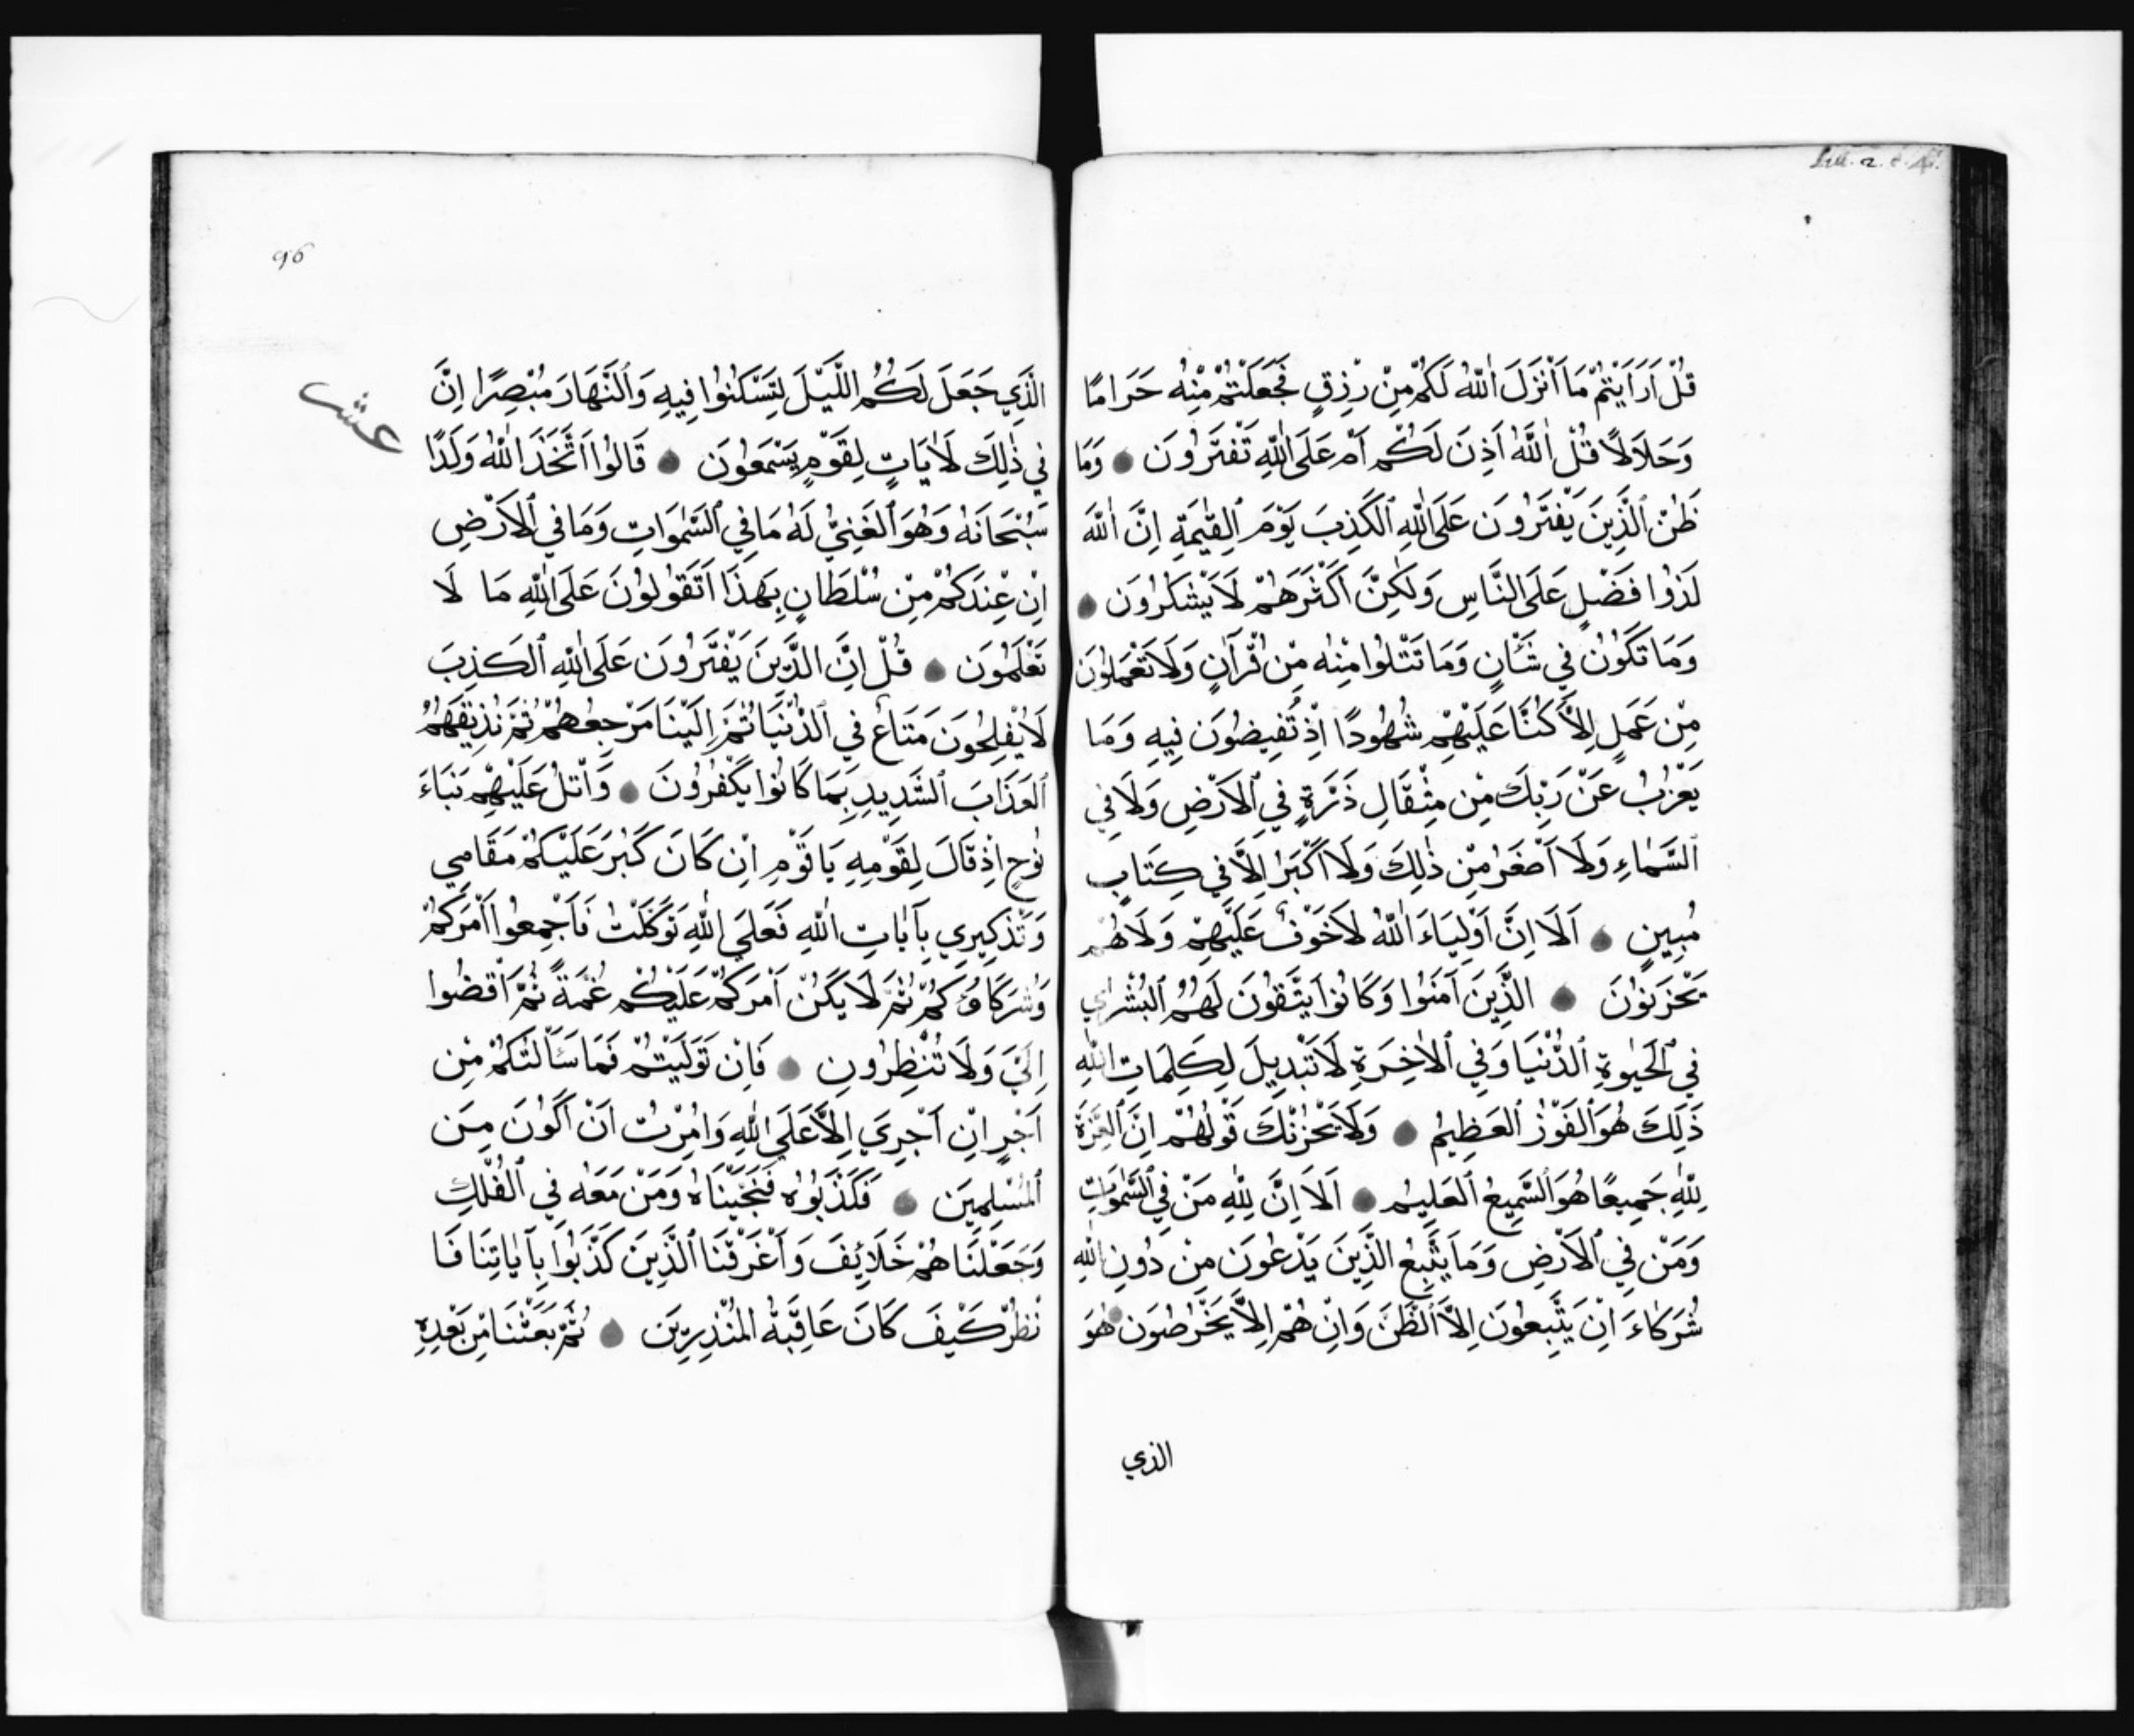 قُلْ اَرَاَيْتُمْ مَا اَنْزَلَ اللّٰهُ لَكُمْ مِنْ رِزْقٍ فَجَعَلْتُمْ مِنْهُ حَرَامًا
وَحَلَالًا قُلْ اللّٰهُ اَذِنَ لَكُمْ اَمْ عَلَى اللّٰهِ تَفْتَرُونَ وَمَا
ظَنُّ الَّذِينَ يَفْتَرُونَ عَلَى اللّٰهِ الْكَذِبَ يَوْمَ الْقِيٰمَةِ اِنَّ اللّٰهَ
لَذُوا فَضْلٍ عَلَى النَّاسِ وَلٰكِنَّ اَكْثَرَهُمْ لَا يَشْكُرُونَ
وَمَا تَكُونُ فِي شَأْنٍ وَمَا تَتْلُوا مِنْهُ مِنْ قُرْآنٍ وَلَا تَعْمَلُونَ
مِنْ عَمَلٍ اِلَّا كُنَّا عَلَيْهِمْ شُهُودًا اِذْ تُفِيضُونَ فِيهِ وَمَا
يَعْزُبُ عَنْ رَبِّكَ مِنْ مِثْقَالِ ذَرَّةٍ فِي الْاَرْضِ وَلَا فِي
السَّمَاءِ وَلَا اَصْغَرُ مِنْ ذٰلِكَ وَلَا اَكْبَرُ اِلَّا فِي كِتَابٍ
مُبِينٍ اَلَا اِنَّ اَوْلِيَاءَ اللّٰهُ لَا خَوْفٌ عَلَيْهِمْ وَلَا هُمْ
يَحْزَنُونَ الَّذِينَ آمَنُوا وَكَانُوا يَتَّقُونَ لَهُمُ الْبُشْرٰي
فِي الْحَيٰوةِ الدُّنْيَا وَفِي الْاٰخِرَةِ لَا تَبْدِيلَ لِكَلِمَاتِ اللّٰهِ
ذٰلِكَ هُوَ الْفَوْزُ الْعَظِيمُ وَلَا يَحْزُنْكَ قَوْلُهُمْ اِنَّ الْعِزَّةَ
لِلّٰهِ جَمِيعًا هُوَ السَّمِيعُ الْعَلِيمُ اَلَا اِنَّ لِلّٰهِ مَنْ فِي السَّمٰوَاتِ
وَمَنْ فِي الْاَرْضِ وَمَا يَتَّبِعُ الَّذِينَ يَدْعُونَ مِنْ دُونِ اللّٰهِ
شُرَكَاءَ اِنْ يَتَّبِعُونَ اِلَّا الظَّنَّ وَاِنْ هُمْ اِلَّا يَخْرُصُونَ هُوَ
الذي
96
الَّذِي جَعَلَ لَكُمُ اللَّيْلَ لِتَسْكُنُوا فِيهِ وَالنَّهَارَ مُبْصِرًا اِنَّ
عشر
فِي ذٰلِكَ لَاٰيَاتٍ لِقَوْمٍ يَسْمَعُونَ قَالُوا اتَّخَذَ اللّٰهُ وَلَدًا
سُبْحَانَهُ وَهُوَ الْغَنِيُّ لَهُ مَا فِي السَّمٰوَاتِ وَمَا فِي الْاَرْضِ
اِنْ عِنْدَكُمْ مِنْ سُلْطَانٍ بِهَذَا اَتَقُولُونَ عَلَى اللّٰهِ مَا لَا
تَعْلَمُونَ قُلْ اِنَّ الَّذِينَ يَفْتَرُونَ عَلَى اللّٰهِ الْكَذِبَ
لَا يُفْلِحُونَ مَتَاعٌ فِي الدُّنْيَا ثُمَّ اِلَيْنَا مَرْجِعُهُمْ ثُمَّ نُذِيقُهُمُ
الْعَذَابَ الشَّدِيدَ بِمَا كَانُوا يَكْفُرُونَ وَاتْلُ عَلَيْهِمْ نَبَاءَ
نُوحٍ اِذْ قَالَ لِقَوْمِهِ يَا قَوْمِ اِنْ كَانَ كَبُرَ عَلَيْكُمْ مَقَامِي
وَتَذْكِيرِي بِآيَاتِ اللّٰهِ فَعَلَى اللّٰهِ تَوَكَّلْتُ فَاَجْمِعُوا اَمْرَكُمْ
وَشُرَكَاؤُكُمْ ثُمَّ لَا يَكُنْ اَمْرُكُمْ عَلَيْكُمْ غُمَّةً ثُمَّ اقْضُوا
اِلَيَّ وَلَا تُنْظِرُونِ فَاِنْ تَوَلَّيْتُمْ فَمَا سَأَلْتُكُمْ مِنْ
اَجْرٍ اِنْ اَجْرِيَ اِلَّا عَلَى اللّٰهِ وَاُمِرْتُ اَنْ اَكُونَ مِنَ
الْمُسْلِمِينَ فَكَذَّبُوهُ فَنَجَّيْنَاهُ وَمَنْ مَعَهُ فِي الْفُلْكِ
وَجَعَلْنَاهُمْ خَلَائِفَ وَاَغْرَقْنَا الَّذِينَ كَذَّبُوا بِآيٰاتِنَا فَا
نْظُرْ كَيْفَ كَانَ عَاقِبَةُ الْمُنْذَرِينَ ثُمَّ بَعَثْنَا مِنْ بَعْدِهِ